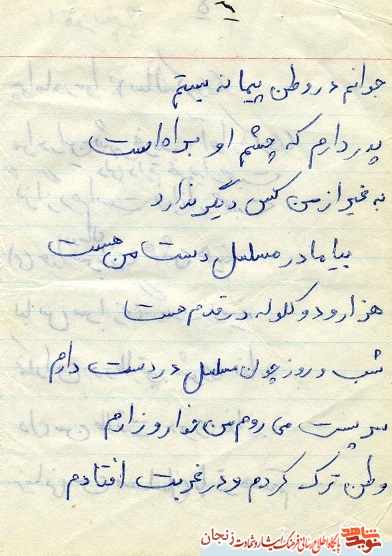 ۵
جوانم در وطن پیمانه بستم
پدر دارم که چشم او براه است
به غیر از من کس دیگر ندارد
بیا مادر مسلسل دست من هست
هزار و دو گلوله در قدم هست
شب و روز چون مسلسل در دست دارم
سر پست می روم من خوار و زارم
وطن ترک کردم و در غربت افتادم
نوید شاهد
پایگاه اطلاع رسانی فرهنگ ایثار و شهادت زنجان